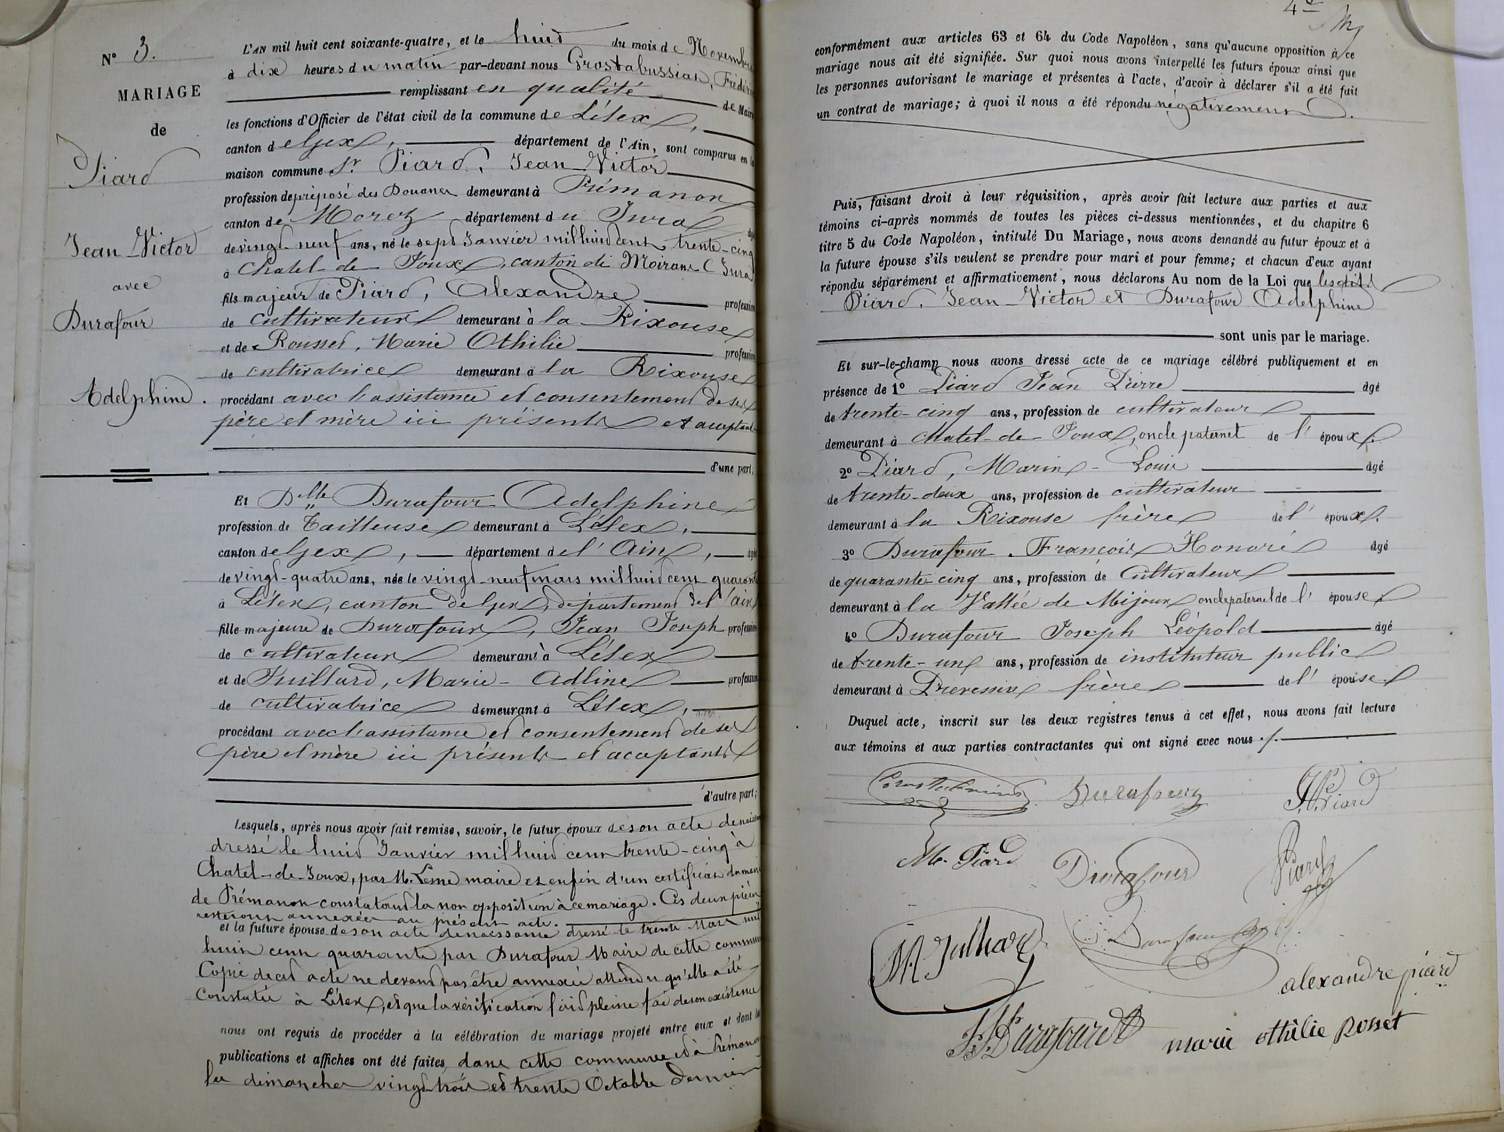 N° 3.
MARIAGE
de
Piard
Jean Victor
avec
Durafour
Adelphine.
L'AN mil huit cent soixante-quatre, et le huit du mois de Novembre
à dix heures du matin par-devant nous Grostabussiat, Frédéric
remplissant en qualité de Maire
les fonctions d'Officier de l'état civil de la commune de Lélex,
canton de Gex, département de l'Ain, sont comparus en la
maison commune Sr Piard, Jean Victor
profession de préposé des Douanes demeurant à Prémanon
canton de Morez département du Jura
de vingt-neuf ans, né le sept Janvier mil huit cent trente-cinq
à Chatel-de-Joux, canton de Moirans (Jura
fils majeur de Piard, Alexandre profession
de cultivateur demeurant à la Rixouse
et de Rousset, Marie Othilie profession
de cultivatrice demeurant à la Rixouse
procédant avec l'assistance et consentement de ses
père et mère ici présents et acceptant
d'une part,
Et Dlle Durafour Adelphine
profession de Tailleuse demeurant à Lélex,
canton de Gex, département de l'Ain, âgée
de vingt-quatre ans, née le vingt-neuf mars mil huit cent quarante
à Lélex, canton de Gex, département de l'Ain
fille majeure de Durafour, Jean Joseph profession
de cultivateur demeurant à Lélex
et de Juillard, Marie-Adline profession
de cultivatrice demeurant à Lélex,
procédant avec l'assistance et consentement de ses
père et mère ici présents et acceptants
d'autre part;
Lesquels, après nous avoir fait remise, savoir, le futur époux de son acte de naissance
dressé le huit Janvier mil huit cent trente-cinq à
Chatel-de-Joux, par M. Lème maire et enfin d'un certificat du maire
de Prémanon constatant la non opposition à ce mariage. Ces deux pièces
resteront annexées au présent acte.
et la future épouse de son acte de naissance dressé le trente Mars mil
huit cent quarante par Durafour Maire de cette commune
Copie de cet acte ne devant pas être annexée attendu qu'elle a été
constatée à Lélex, et que la vérification fait pleine foi de son existence
nous ont requis de procéder à la célébration du mariage projeté entre eux et dont les
publications et affiches ont été faites dans cette commune et à Prémanon
les dimanches vingt trois et trente Octobre dernier
4e
conformément aux articles 63 et 64 du Code Napoléon, sans qu'aucune opposition à ce
mariage nous ait été signifiée. Sur quoi nous avons interpellé les futurs époux ainsi que
les personnes autorisant le mariage et présentes à l'acte, d'avoir à déclarer s'il a été fait
un contrat de mariage; à quoi il nous a été répondu négativement.
Puis, faisant droit à leur réquisition, après avoir fait lecture aux parties et aux
témoins ci-après nommés de toutes les pièces ci-dessus mentionnées, et du chapitre 6
titre 5 du Code Napoléon, intitulé Du Mariage, nous avons demandé au futur époux et à
la future épouse s'ils veulent se prendre pour mari et pour femme; et chacun d'eux ayant
répondu séparément et affirmativement, nous déclarons Au nom de la Loi que les dits
Piard, Jean Victor et Durafour Adelphine
sont unis par le mariage.
Et sur-le-champ nous avons dressé acte de ce mariage célébré publiquement et en
présence de 1° Piard Jean Pierre âgé
de trente-cinq ans, profession de cultivateur
demeurant à Chatel-de-Joux, oncle paternel de l'époux.
2° Piard, Marin-Louis âgé
de trente-deux ans, profession de cultivateur
demeurant à la Rixouse frère de l'époux.
3° Durafour François Honoré âgé
de quarante-cinq ans, profession de Cultivateur
demeurant à la Vallée de Mijoux oncle paternel de l'épouse
4° Durafour Joseph Léopold âgé
de trente-un ans, profession de instituteur public
demeurant à Drevessin frère de l'épouse
Duquel acte, inscrit sur les deux registres tenus à cet effet, nous avons fait lecture
aux témoins et aux parties contractantes qui ont signé avec nous.
Durafour
J. P. Piard
M. Piard
Durafour
Piard
M. Julliard
Durafour
alexandre piard
J. J. Durafour
marie othilie rosset